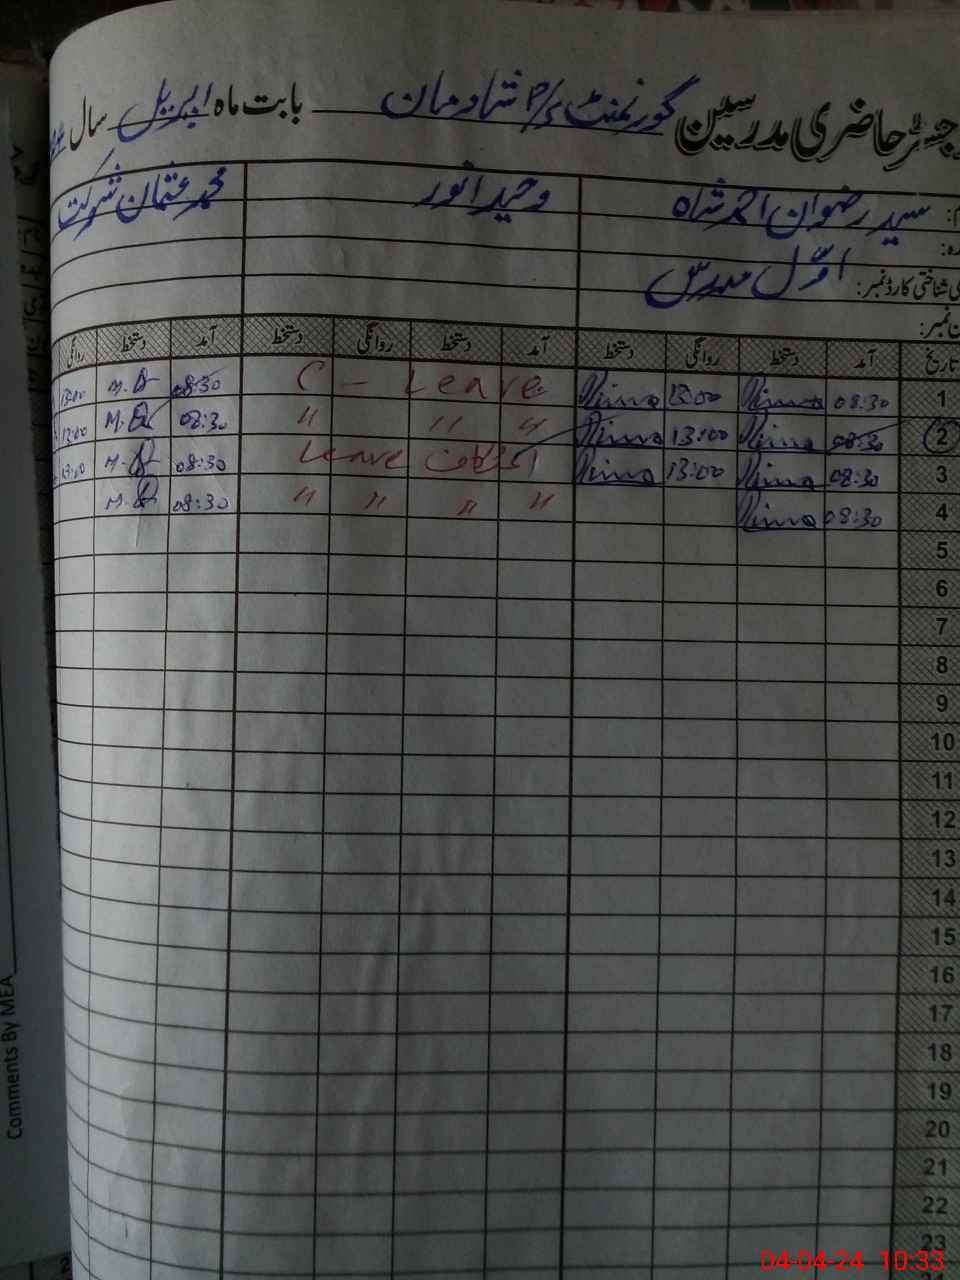 رجسٹر حاضری مدرسین گورنمنٹ p/s شادمان بابت ماہ اپریل سال
سید رضوان احمد شاہ وحید انور محمد عثمان شوکت
اوّل مدرس
شناختی کارڈ نمبر:
نمبر:
تاریخ آمد دستخط روانگی دستخط آمد دستخط روانگی دستخط آمد دستخط روانگی
1 08:30 13:00 C - Leave 08:30 13:00
2 08:30 13:00 " " " 08:30 13:00
3 08:30 13:00 Leave اعتکاف 08:30 13:00
4 08:30 " " " " 08:30
5
6
7
8
9
10
11
12
13
14
15
16
17
18
19
20
21
22
23
Comments By MEA
04-04-24 10:33